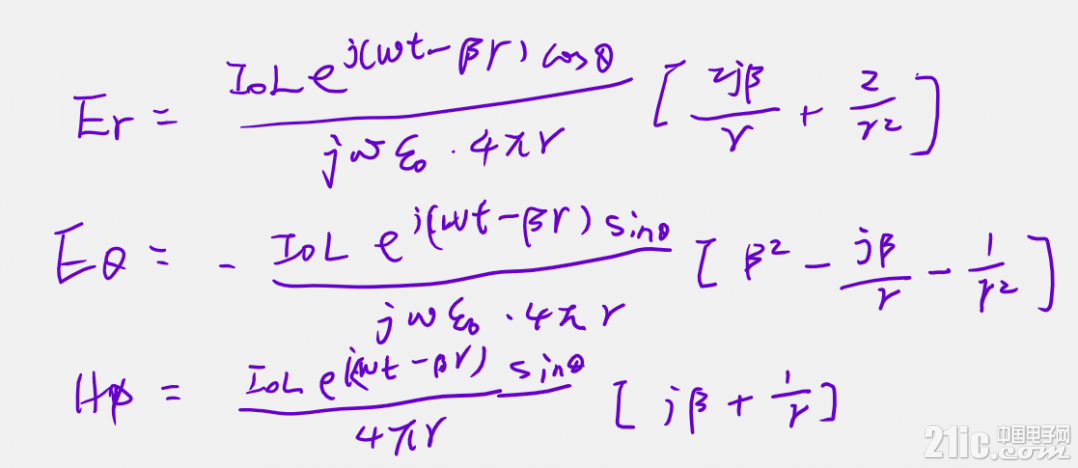 Er = \frac{I_0 L e^{j(ωt-βr)} cosθ}{jωε_0 · 4πr} [ \frac{2jβ}{r} + \frac{2}{r^2} ]
Eθ = - \frac{I_0 L e^{j(ωt-βr)} sinθ}{jωε_0 · 4πr} [ β^2 - \frac{jβ}{r} - \frac{1}{r^2} ]
Hφ = \frac{I_0 L e^{j(ωt-βr)} sinθ}{4πr} [ jβ + \frac{1}{r} ]
21ic.com 中国电子网